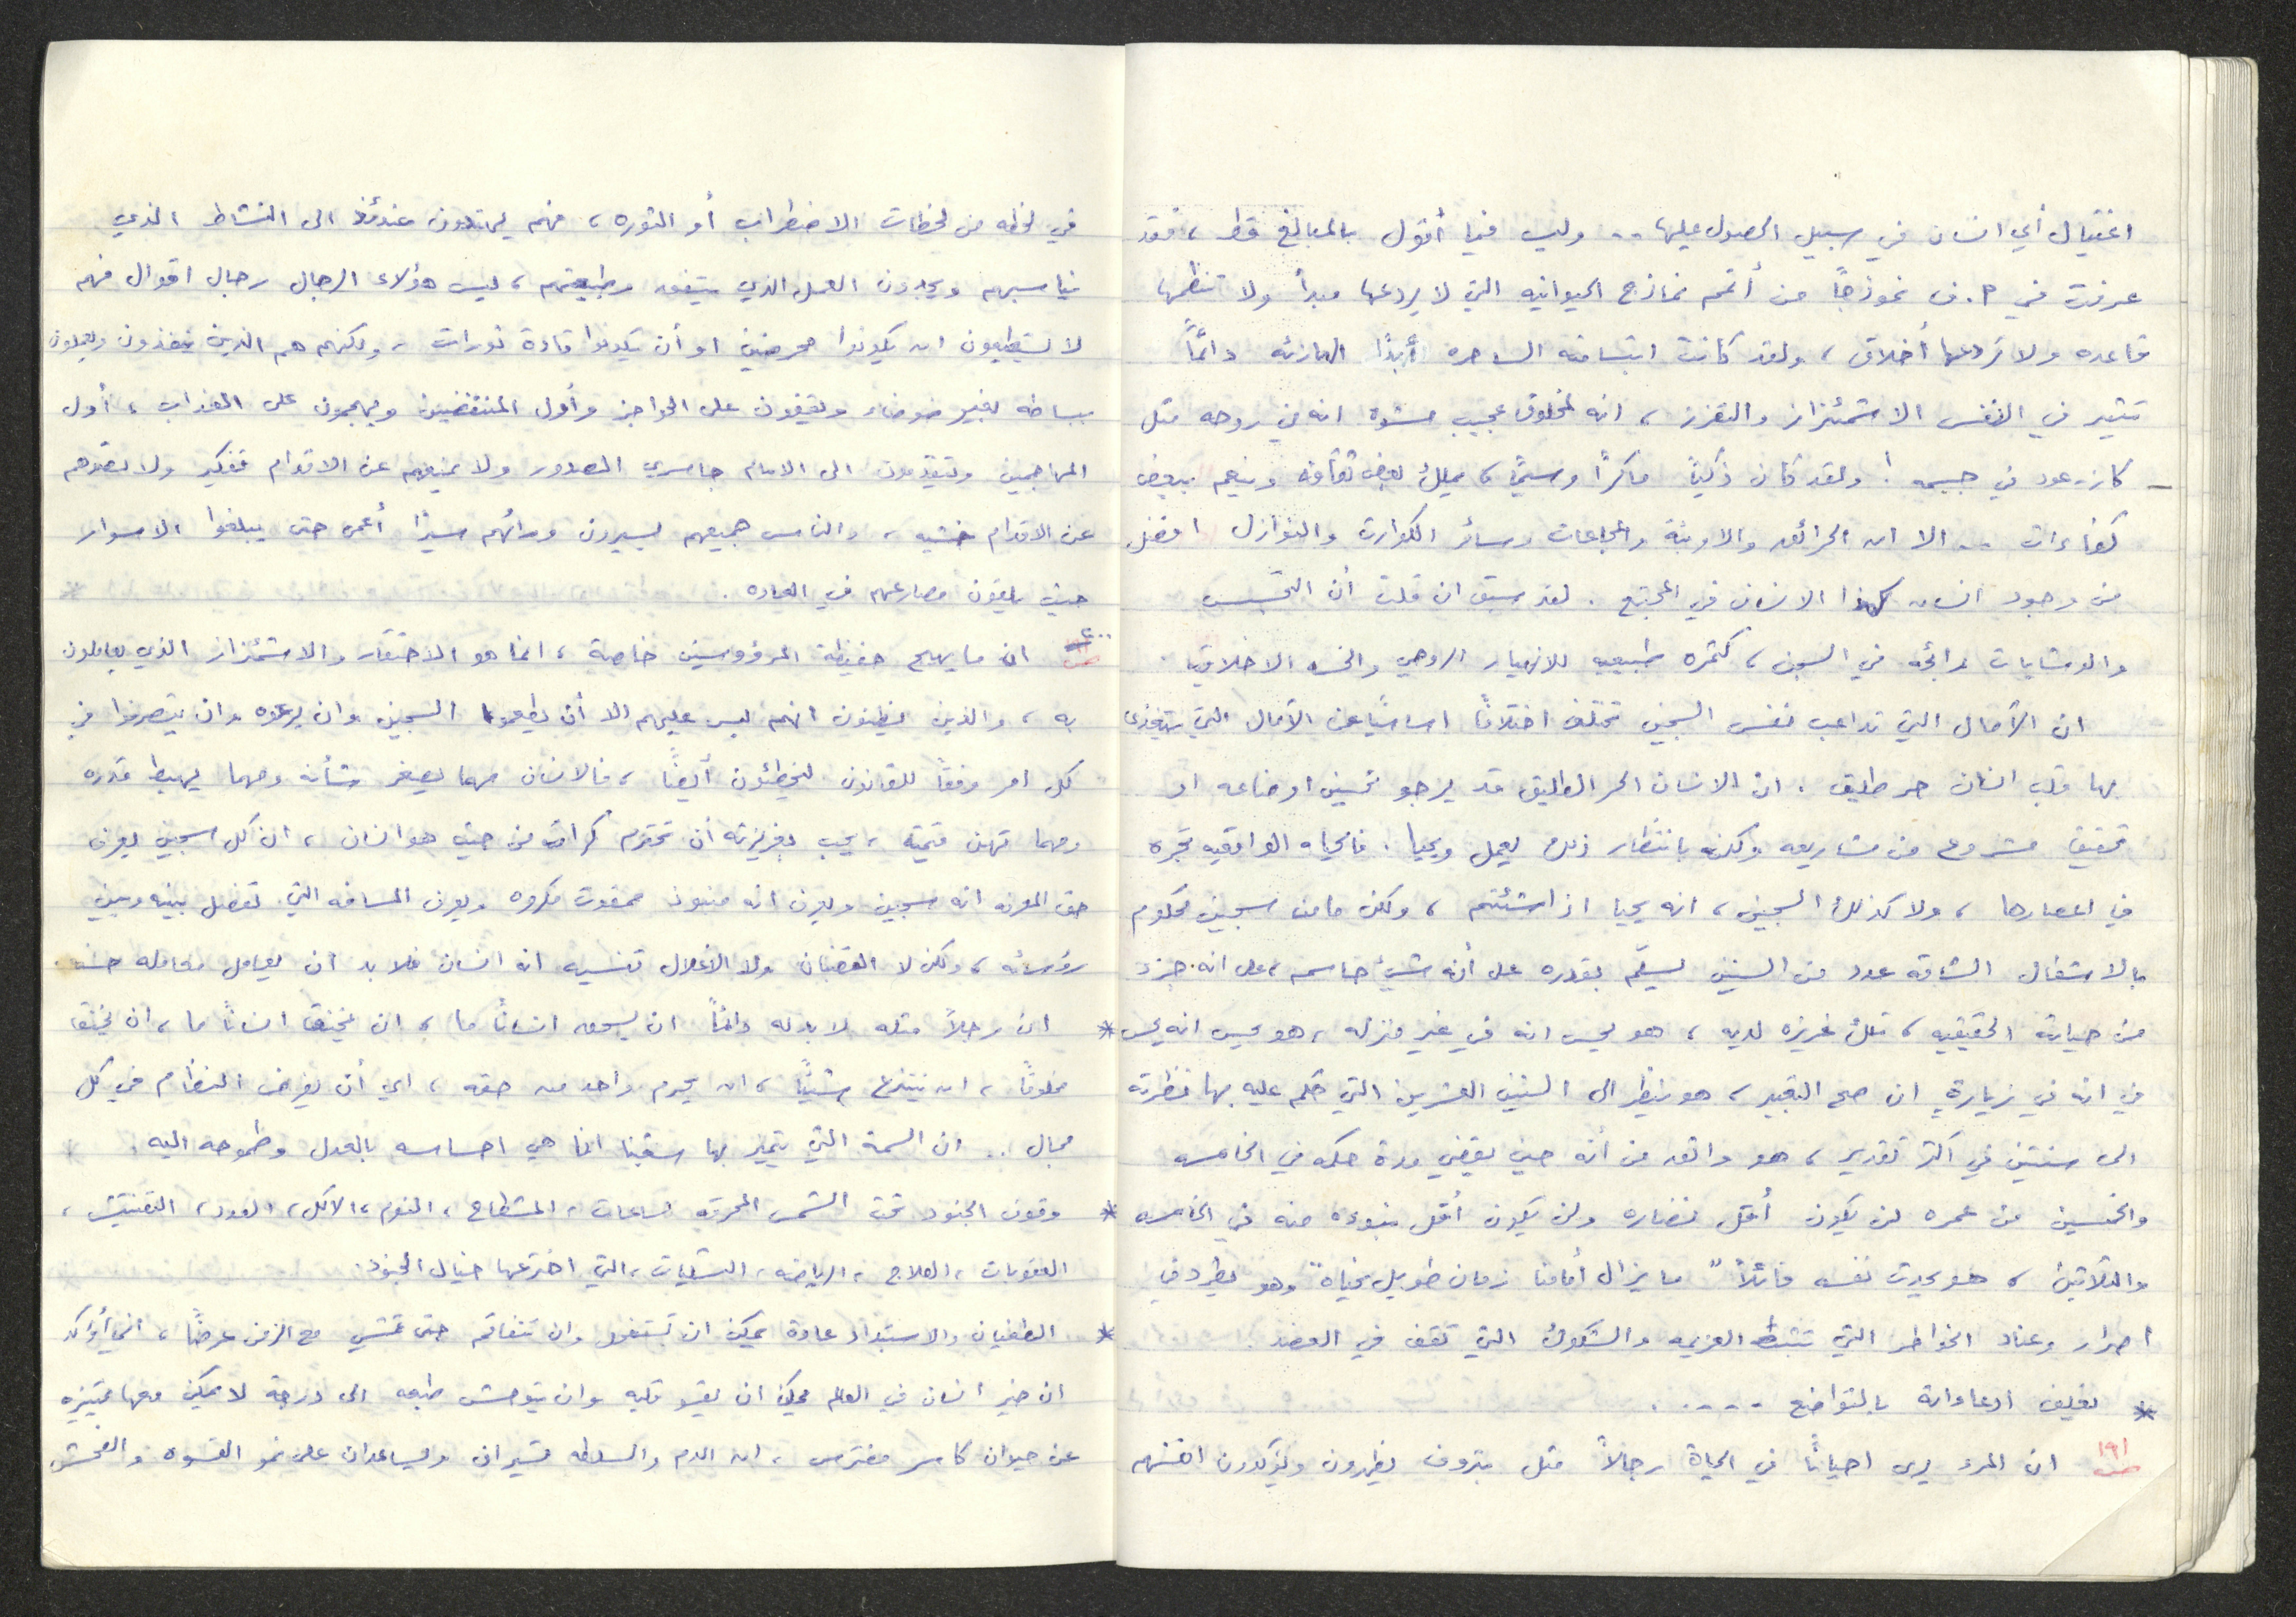 اغتيال أي انسان في سبيل الحصول عليها .. وليس فيما أقول بالمبالغ قط ، فقد
عرفت في م.ف نموذجاً من أتم نماذج الحيوانيه التي لا يردعها مبدأ ولا تنظمها
قاعده ولا تردعها أخلاق ، ولقد كانت ابتسامته الساخره أبدًا الهازئه دائماً
تثير في النفس الاشمئزاز والتقزز ، انه لمخلوق عجيب مشوه انه في روحه مثل
كازيمود في جسمه ! ولقد كان ذكياً ماكراً وسيماً ، يملك بعض ثقافه وينعم ببعض
كفاءات .. الا ان الحرائق والاوبئة والمجاعات وسائر الكوارث والنوازل افضل
من وجود انسان كهذا الانسان في المجتمع . لقد سبق ان قلت أن التجسس
والوشايات رائجه في السجن ، كثمره طبيعيه للانهيار الروحي والخسه الاخلاقيه .
ان الآمال التي تداعب نفس السجين تختلف اختلافاً اساسياً عن الآمال التي يتغذى
بها قلب انسان حر طليق . ان الانسان الحر الطليق قد يرجو تحسين اوضاعه او
تحقيق مشروع من مشاريعه ولكنه بانتظار ذلك يعمل ويحيا . فالحياه الواقعيه تجره
في اعصارها ، ولا كذلك السجين ، انه يحيا اذا شئتم ، ولكن ما من سجين محكوم
بالاشغال الشاقه عدد من السنين يسلّم بقدره على أنه شيء حاسم ، على انه جزء
من حياته الحقيقيه ، تلك غريزه لديه ، هو يحس انه في غير منزله ، هو يحس انه يحس
في انه في زيارةٍ ان صح التعبير ، هو ينظر الى السنين العشرين التي حكم عليه بها نظرته
الى سنتين في اكثر تقدير ، هو واثق من أنه حين يقضي مدة حكمه في الخامسه
والخمسين من عمره لن يكون أقل نضاره ولن يكون أقل منه في الخامسه
والثلاثين ، هو يحدث نفسه قائلاً " ما يزال أمامنا زمان طويل نحياه " وهو يطرد في
اصرار وعناد الخواطر التي تثبط العزيمه والشكوك التي تقف في العضد .
* تغليف ادعاءاته بالتواضع .....
ص ١٩١ ان المرء يرى احياناً في الحياة رجالاً مثل بتروف يظهرون ويؤكدون انفسهم
في لحظه من لحظات الاضطراب أو الثوره ، فهم يهتدون عندئذ الى النشاط الذي
يناسبهم ويجدون العمل الذي يتفق وطبيعتهم ، ليس هؤلاء الرجال رجال اقوال فهم
لا يستطيعون ان يكونوا محرضين او أن يكونوا قادة ثورات ، ولكنهم هم الذين ينفذون ويعملون
ببساطه بغير ضوضاء ويقفون على الحواجز وأول المنتفضين ويهجمون على العذاب ، أول
المهاجمين ويتقدمون الى الامام حاسري الصدور ولا يمنعهم عن الاقدام تفكير ولا يصدهم
عن الاقدام خشيه ، والناس جميعهم يسيرون ورائهم سيراً أعمى حتى يبلغوا الاسوار
حيث يلقون مصارعهم في العاده .
ص ٢٠٠ ان ما يهيج حفيظة المرؤوسين خاصة ، انما هو الاحتقار والاشمئزاز الذي يعاملون
به ، والذين يظنون انهم ليس عليهم الا أن يطعموا السجين وان يرعوه وان يتصرفوا في
كل امر وفقاً للقانون ليخطئون أيضاً ، فالانسان مهما يصغر شأنه ومهما يهبط قدره
ومهما تهن قيمته ، يحب بغريزته أن تحترم كرامته من حيث هو انسان ، ان كل سجين يعرف
حق المعرفه انه سجين ويعرف انه منبوذ ممقوت مكروه ويعرف المسافه التي تفصل بينه وبين
رؤسائه ، ولكن لا القضبان ولا الاغلال تنسيه انه انسان فلا بد ان يعامل معامله حسنه .
* ان رجلاً مثله لا بد له دائماً ان يسحق انساناً ما ، ان يخنق انساناً ما ، ان يخنق
مخلوقاً ، ان ينتزع شيئاً ، ان يحرم واحد من حقه ، اي أن يفرض النظام في كل
مجال .. ان السمة التي يتميز بها شعبنا انما هي احساسه بالعدل وطموحه اليه .
* وقوف الجنود تحت الشمس المحرقه لساعات ، المشطاح ، النوم ، الاكل ، العدد ، التفتيش ،
العقوبات ، العلاج ، الرياضه ، التسليات ، التي اخترعها خيال الجنود .
* الطغيان والاستبداد عادة يمكن ان تستفحل وان تتفاقم حتى تمسي مع الزمن مرضاً ، اني أؤكد
ان خير انسان في العالم يمكن ان يقسو قلبه وان يتوحش طبعه الى درجة لا يمكن معها تمييزه
عن حيوان كاسر مفترس ، ان الدم والسلطه يسكران ويساعدان على نمو القسوه والفحش